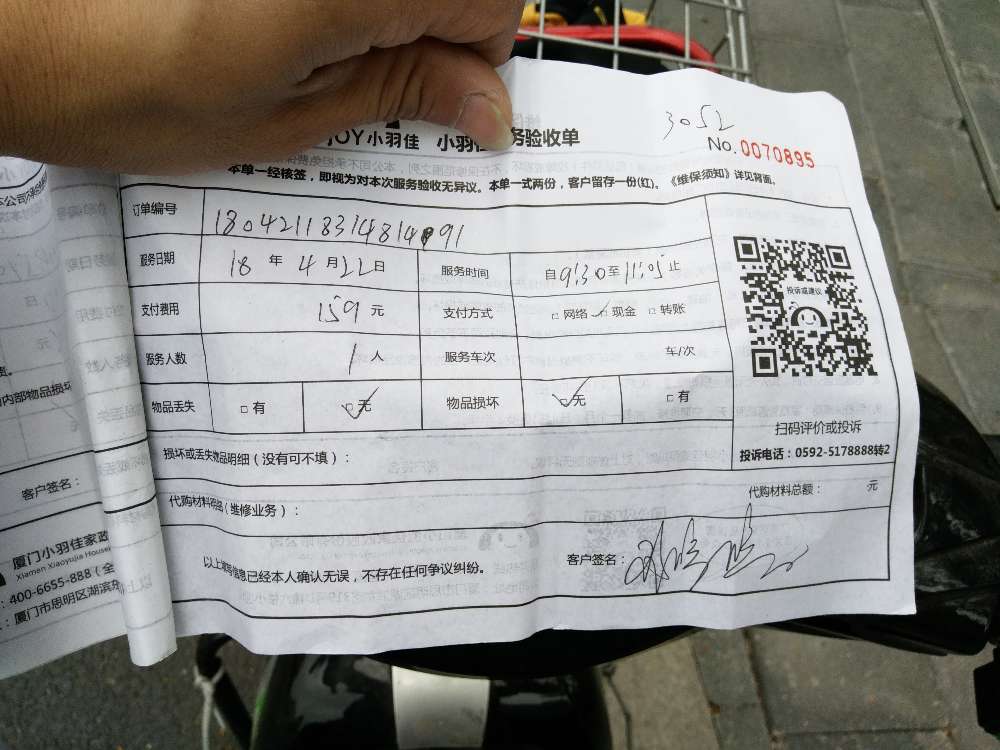 3052
JOY小羽佳 小羽 务验收单
No.0070895
本单一经核签，即视为对本次服务验收无异议。本单一式两份，客户留存一份(红)。《维保须知》详见背面。
订单编号
服务日期 18 年 4 月 22 日 服务时间 自 9:30 至 11:05 止
支付费用 159 元 支付方式 □ 网络 □ 现金 □ 转账
服务人数 1 人 服务车次 车/次
物品丢失 □ 有 □ 无 物品损坏 □ 无 □ 有
投诉或建议
扫码评价或投诉
投诉电话：0592-5178888转2
损坏或丢失物品明细（没有可不填）：
代购材料明细（维修业务）：
代购材料总额： 元
以上填写信息已经本人确认无误，不存在任何争议纠纷。
客户签名：
内部物品损坏
客户签名：
厦门小羽佳家政
Xiamen Xiaoyujia House
400-6655-888
厦门市思明区湖滨东